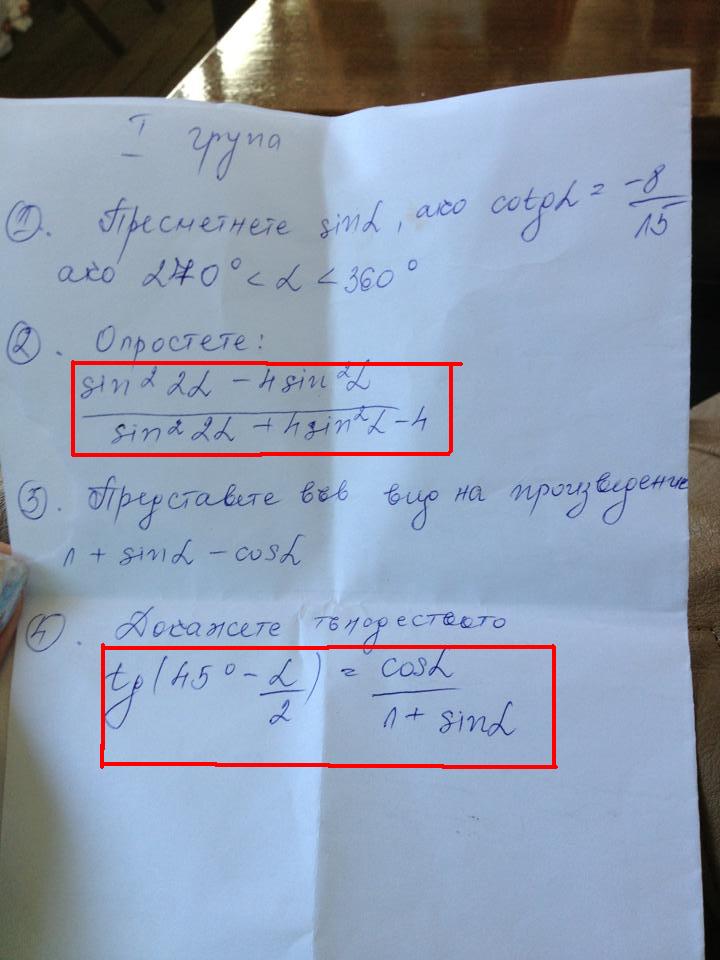 I група
①. Пресметнете sinα, ако cotgα = -8/15
ако 270° < α < 360°
②. Опростете:
sin² 2α - 4sin²α
sin² 2α + 4sin²α - 4
③. Представете във вид на произведение
1 + sinα - cosα
④. Докажете тъждеството
tg(45° - α/2) = cosα/(1 + sinα)